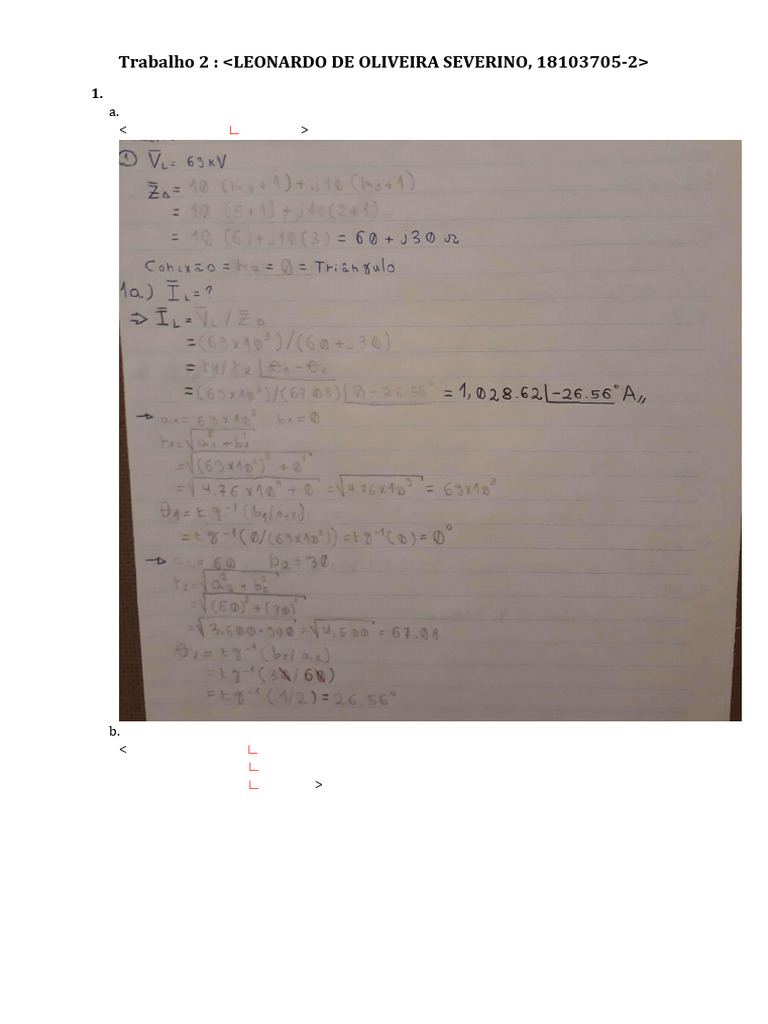 Trabalho 2 : <LEONARDO DE OLIVEIRA SEVERINO, 18103705-2>
1.
a.
< ∟ >
① V̅L = 69 kV
Z̅Δ = 10·(n₃+1)+j10(n₃+1)
= 10·(5+1)+j10(2+1)
= 10·(6)+j10(3) = 60 + j30 Ω
Conixão = = 0 = Triângulo
1a) I̅L = ?
⇒ I̅L = V̅L / Z̅Δ
= (69x10³)/(60+j30)
= r1/r2 ∟θ1-θ2
= (69x10³)/(67.08)∟0-26.56° = 1,028.62∟-26.56° A,,
→ a1 = 69x10³ b1 = 0
r1 = √a1² + b1²
= √(69x10³)² + 0²
= √4.76x10⁹ + 0 = √4.76x10⁹ = 69x10³
θ1 = tg⁻¹(b1/a1)
= tg⁻¹(0/(69x10³)) = tg⁻¹(0) = 0°
→ a2 = 60 b2 = 30
r2 = √a2² + b2²
= √(60)² + (30)²
= √3.600+900 = √4,500 = 67.08
θ2 = tg⁻¹(b2/a2)
= tg⁻¹(30/60)
= tg⁻¹(1/2) = 26.56°
b.
< ∟
∟
∟ >